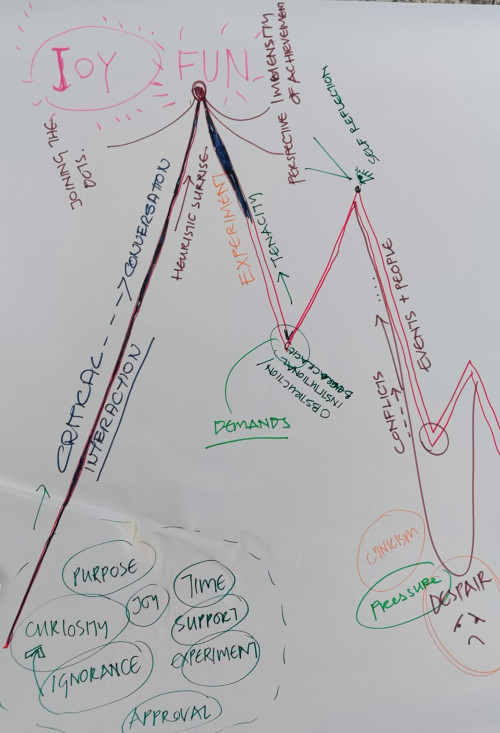 JOY
FUN
PERSPECTIVE IMMENSITY
OF ACHIEVEMENT
JOINING THE
DOTS.
SELF REFLECTION
CRITICAL ---> CONVERSATION
INTERACTION
HEURISTIC SURRISE
EXPERIMENT
TENACITY
OBSTRUCTION/
INSTITUTIONAL
DEMANDS
EVENTS + PEOPLE
CONFLICTS
CYNICISM
PRESSURE
DESPAIR
PURPOSE
JOY
TIME
CURIOSITY
SUPPORT
IGNORANCE
EXPERIMENT
APPROVAL